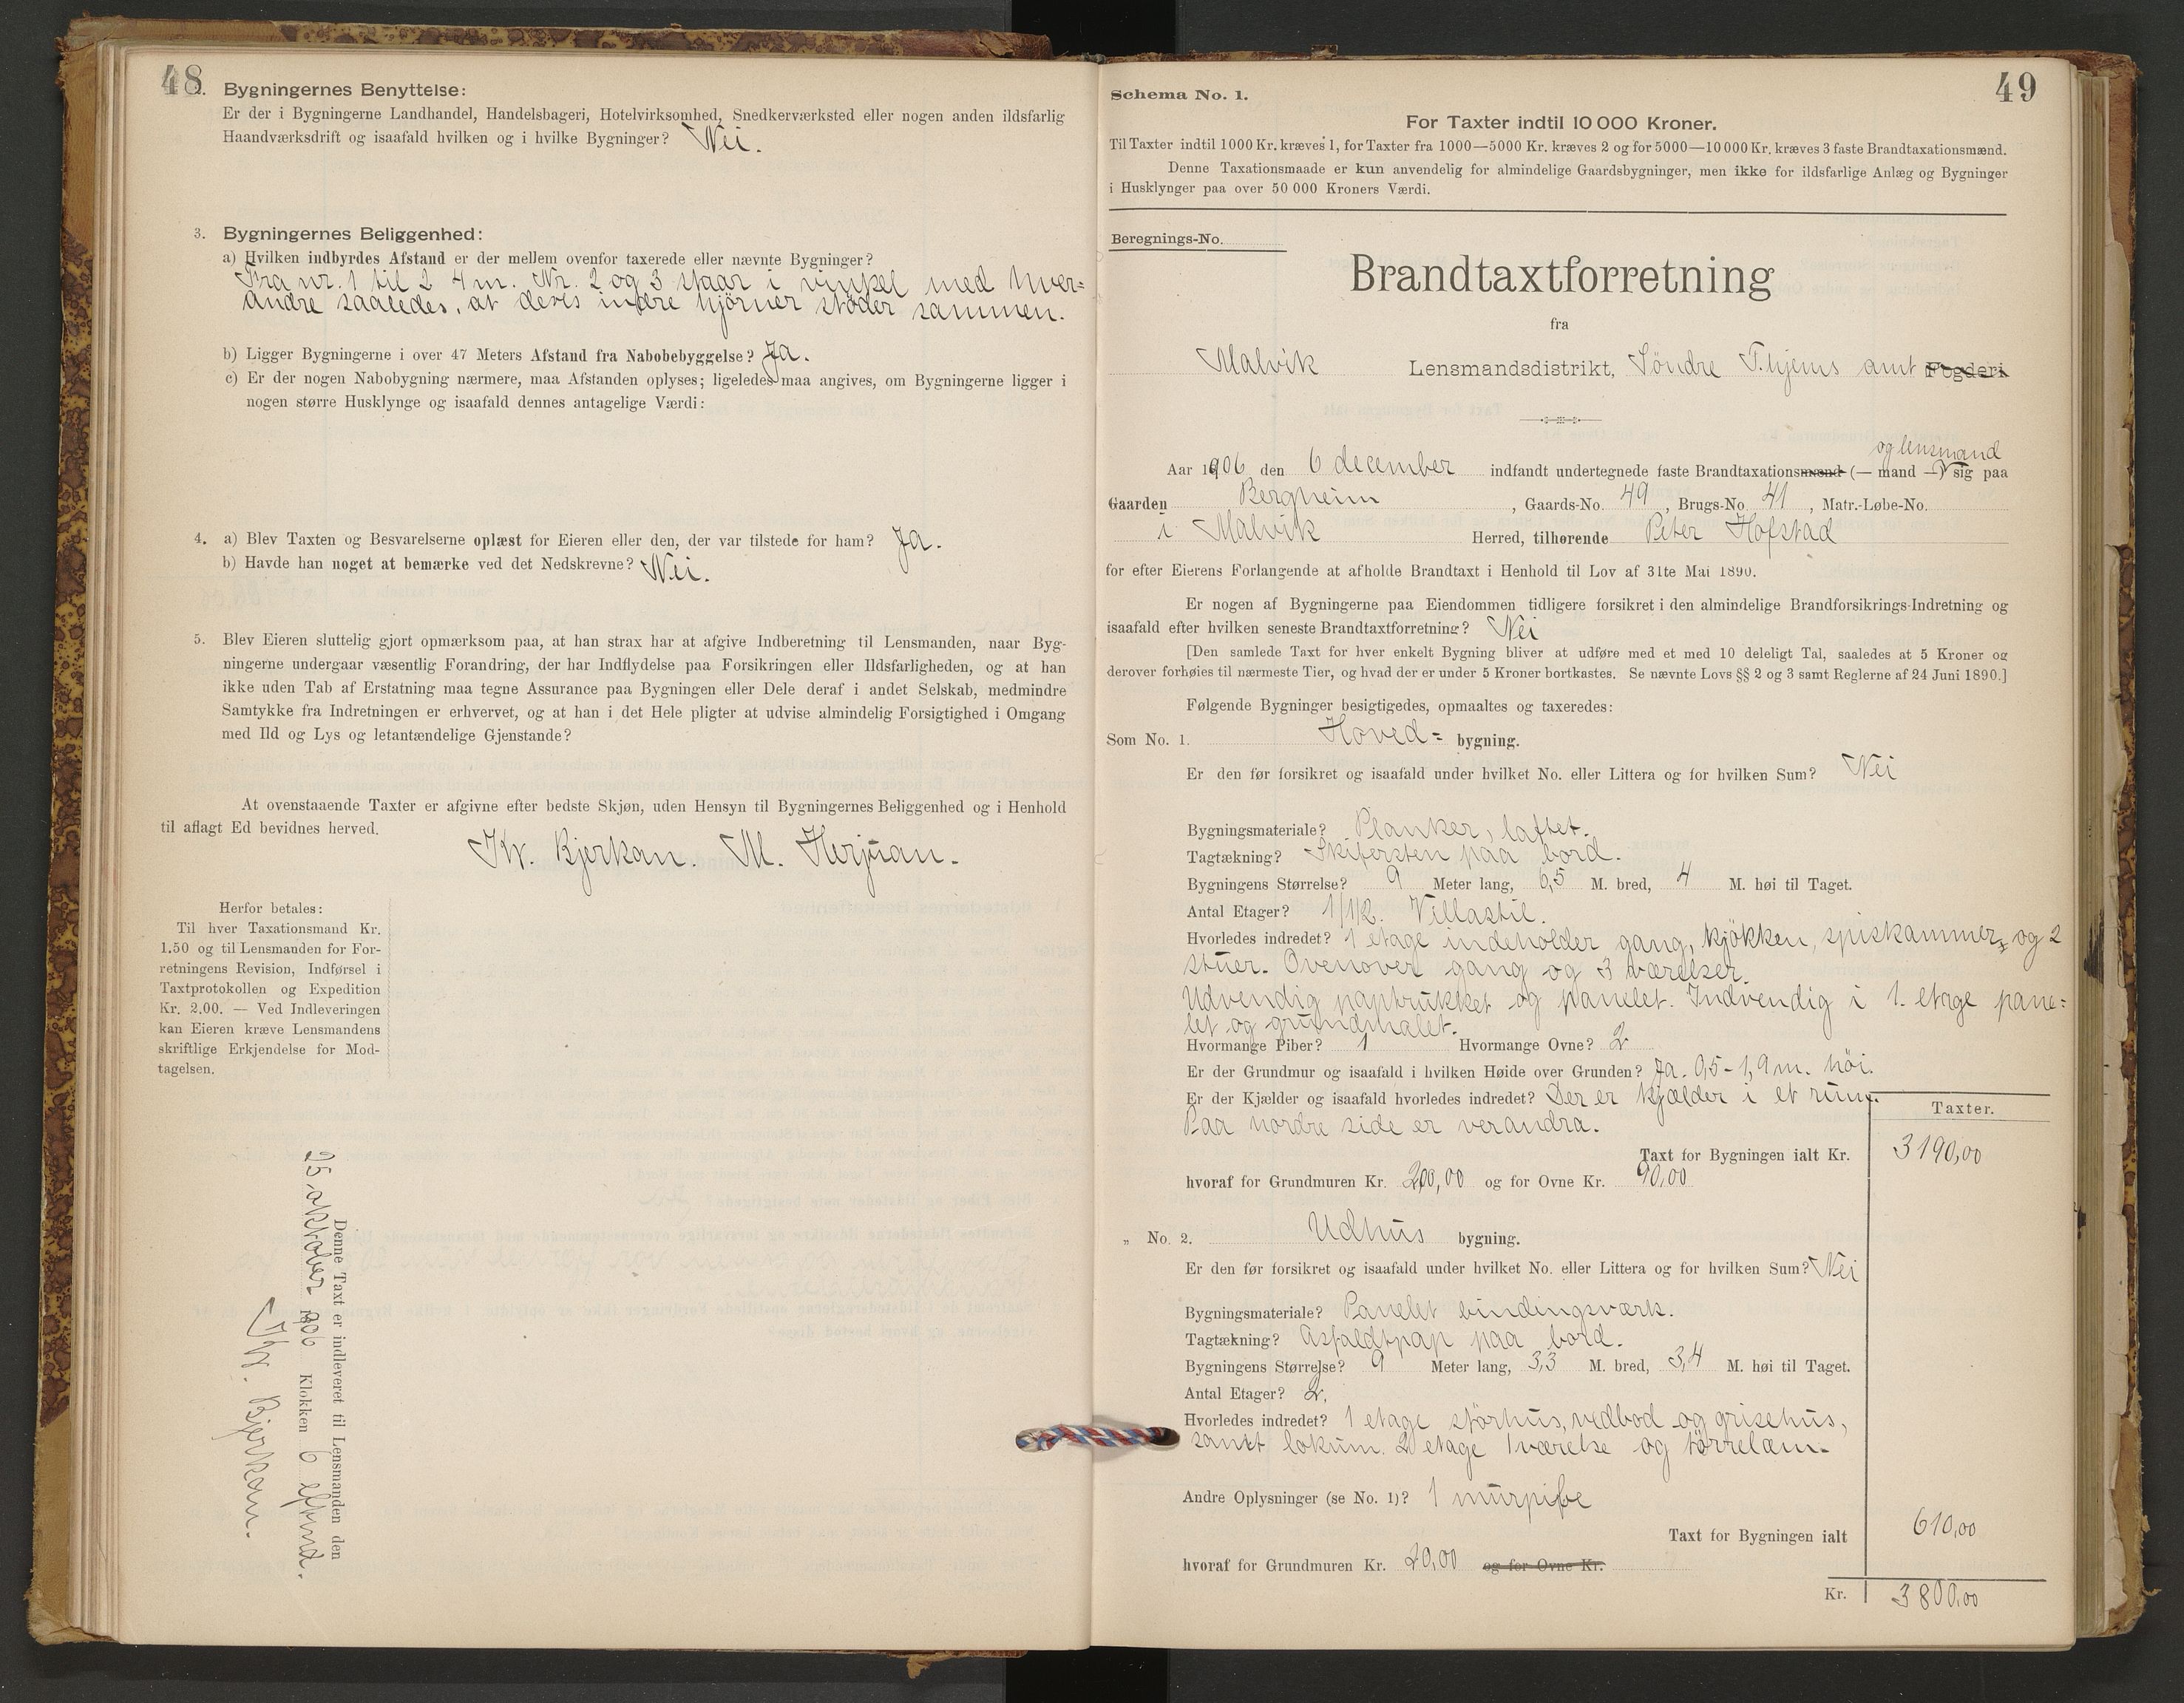 48
2. Bygningernes Benyttelse:
Er der i Bygningerne Landhandel, Handelsbageri, Hotelvirksomhed, Snedkerværksted eller nogen anden ildsfarlig
Haandværksdrift og isaafald hvilken og i hvilke Bygninger? Nei.
3. Bygningernes Beliggenhed:
a) Hvilken indbyrdes Afstand er der mellem ovenfor taxerede eller nævnte Bygninger?
Fra nr. 1 til 2 4 m. Nr. 2 og 3 staar i vinkel med hver=
andre saaledes, at deres indre hjörner støder sammen.
b) Ligger Bygningerne i over 47 Meters Afstand fra Nabobebyggelse? Ja.
c) Er der nogen Nabobygning nærmere, maa Afstanden oplyses; ligeledes maa angives, om Bygningerne ligger i
nogen større Husklynge og isaafald dennes antagelige Værdi:
4. a) Blev Taxten og Besvarelserne oplæst for Eieren eller den, der var tilstede for ham? Ja.
b) Havde han noget at bemærke ved det Nedskrevne? Nei.
5. Blev Eieren sluttelig gjort opmærksom paa, at han strax har at afgive Indberetning til Lensmanden, naar Byg-
ningerne undergaar væsentlig Forandring, der har Indflydelse paa Forsikringen eller Ildsfarligheden, og at han
ikke uden Tab af Erstatning maa tegne Assurance paa Bygningen eller Dele deraf i andet Selskab, medmindre
Samtykke fra Indretningen er erhvervet, og at han i det Hele pligter at udvise almindelig Forsigtighed i Omgang
med Ild og Lys og letantændelige Gjenstande?
At ovenstaaende Taxter er afgivne efter bedste Skjøn, uden Hensyn til Bygningernes Beliggenhed og i Henhold
til aflagt Ed bevidnes herved.
Kr. Bjerkan. M. Herjuan.
Herfor betales:
Til hver Taxationsmand Kr.
1.50 og til Lensmanden for For-
retningens Revision, Indførsel i
Taxtprotokollen og Expedition
Kr. 2.00. — Ved Indleveringen
kan Eieren kræve Lensmandens
skriftlige Erkjendelse for Mod-
tagelsen.
Denne Taxt er indleveret til Lensmanden den
25 oktober 1906 Klokken 6 eftmd.
Kr. Bjerkan.
49
Schema No. 1.
For Taxter indtil 10 000 Kroner.
Til Taxter indtil 1000 Kr. kræves 1, for Taxter fra 1000—5000 Kr. kræves 2 og for 5000—10 000 Kr. kræves 3 faste Brandtaxationsmænd.
Denne Taxationsmaade er kun anvendelig for almindelige Gaardsbygninger, men ikke for ildsfarlige Anlæg og Bygninger
i Husklynger paa over 50 000 Kroners Værdi.
Beregnings-No.
Brandtaxtforretning
fra
Malvik Lensmandsdistrikt, Söndre T.hjems amt Fogderi
og lensmand
Aar 1906 den 6 december indfandt undertegnede faste Brandtaxationsmænd (— mand —) sig paa
Gaarden Bergheim, Gaards-No. 49, Brugs-No. 41, Matr.-Løbe-No.
i Malvik Herred, tilhørende Peter Hofstad
for efter Eierens Forlangende at afholde Brandtaxt i Henhold til Lov af 31te Mai 1890.
Er nogen af Bygningerne paa Eiendommen tidligere forsikret i den almindelige Brandforsikrings-Indretning og
isaafald efter hvilken seneste Brandtaxtforretning? Nei
[Den samlede Taxt for hver enkelt Bygning bliver at udføre med et med 10 deleligt Tal, saaledes at 5 Kroner og
derover forhøies til nærmeste Tier, og hvad der er under 5 Kroner bortkastes. Se nævnte Lovs §§ 2 og 3 samt Reglerne af 24 Juni 1890.]
Følgende Bygninger besigtigedes, opmaaltes og taxeredes:
Som No. 1. Hoved= bygning.
Er den før forsikret og isaafald under hvilket No. eller Littera og for hvilken Sum? Nei
Bygningsmateriale? Planker, laftet.
Tagtækning? Skifersten paa bord.
Bygningens Størrelse? 9 Meter lang, 6,5 M. bred, 4 M. høi til Taget.
Antal Etager? 1 1/2. Villastil.
Hvorledes indredet? 1 etage indeholder gang, kjökken, spiskammer, og 2
stuer. Ovenover gang og 3 værelser.
Udvendig paptrukket og panelet. Indvendig i 1. etage pane=
let og grundmalet.
Hvormange Piber? 1 Hvormange Ovne? 2
Er der Grundmur og isaafald i hvilken Høide over Grunden? Ja. 0,5-1,9 m. höi.
Er der Kjælder og isaafald hvorledes indredet? Der er kjælder i et rum.
Paa nordre side er verandra.
Taxter.
Taxt for Bygningen ialt Kr. 3190,00
hvoraf for Grundmuren Kr. 200,00 og for Ovne Kr. 90,00
„ No. 2. Udhus bygning.
Er den før forsikret og isaafald under hvilket No. eller Littera og for hvilken Sum? Nei
Bygningsmateriale? Panelet bindingsværk.
Tagtækning? Asfaldtpap paa bord.
Bygningens Størrelse? 9 Meter lang, 3,3 M. bred, 3,4 M. høi til Taget.
Antal Etager? 2.
Hvorledes indredet? 1 etage störhus, vedbod og grisehus,
samt lokum. 2 etage 1 værelse og törrelæm.
Andre Oplysninger (se No. 1)? 1 murpibe
Taxt for Bygningen ialt 610,00
hvoraf for Grundmuren Kr. 20,00 og for Ovne Kr.
Kr. 3800,00